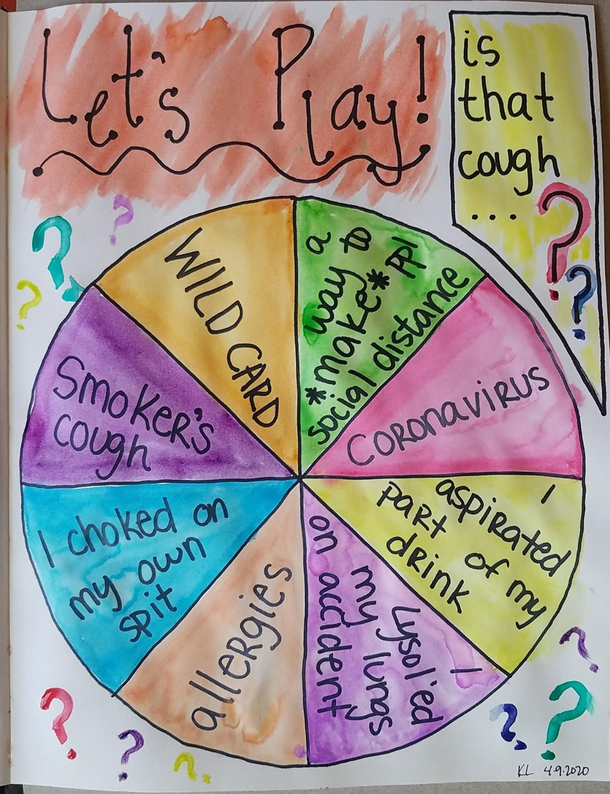 Let's Play!
is
that
cough
...?
?
WILD CARD
a
way to
*make* ppl
social distance
CORONAVIRUS
I
aspirated
part of my
drink
I
Lysol'ed
my lungs
on accident
allergies
I choked on
my own
spit
Smoker's
cough
?
?
?
?
?
?
?
?
?
KL 4.9.2020